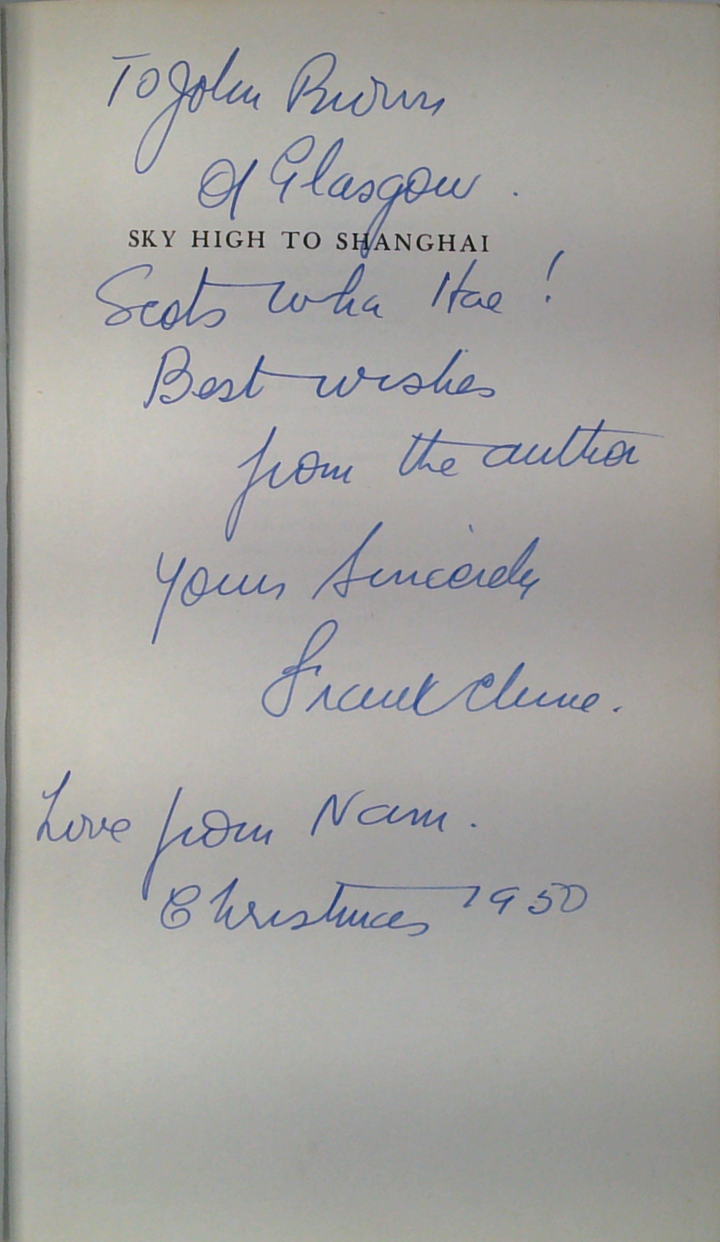 To John Burns
of Glasgow.
SKY HIGH TO SHANGHAI
Scots Wha Hae!
Best wishes
from the author
Yours Sincerely
Frank Clune.
Love from Nam.
Christmas 1950